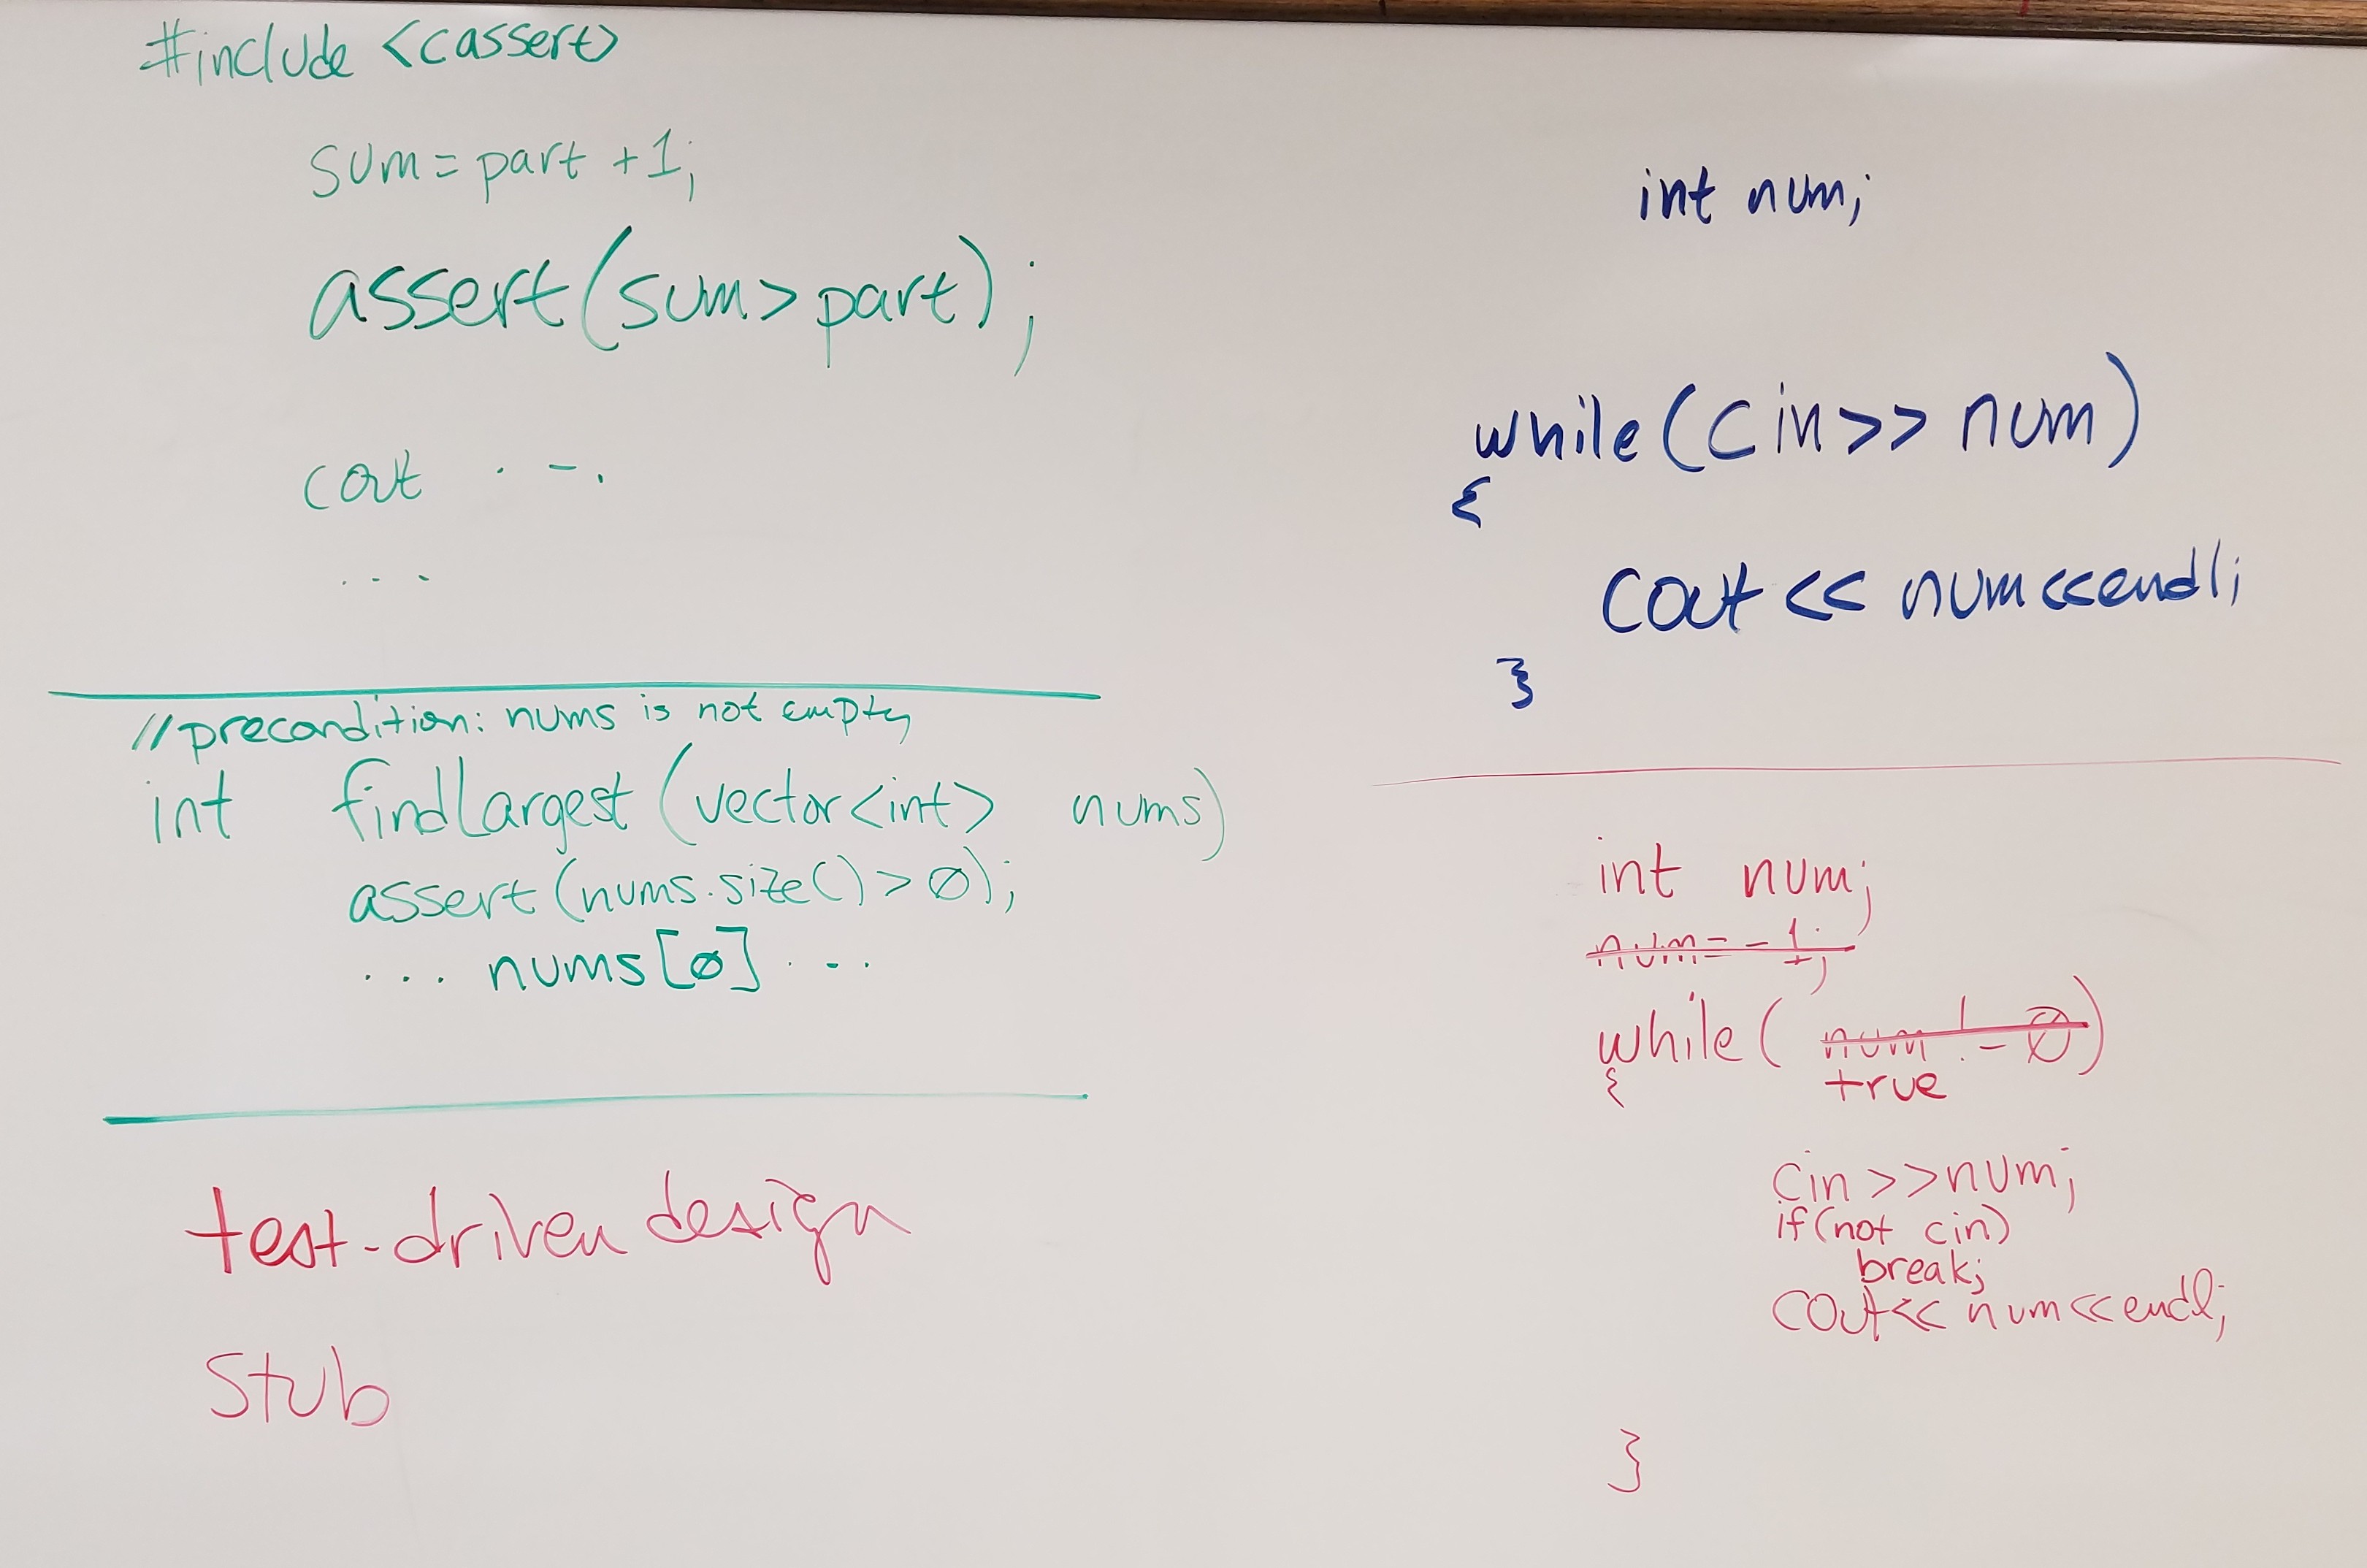 #include <cassert>
sum = part + 1;
assert(sum > part);
cout . - .
. . .
//precondition: nums is not empty
int findLargest(vector<int> nums)
assert(nums.size() > 0);
... nums[0] ...
test-driven design
stub
int num;
while(cin >> num)
{
cout << num << endl;
}
int num;
num = -1;
while( num != 0)
true
{
cin >> num;
if(not cin)
break;
cout << num << endl;
}